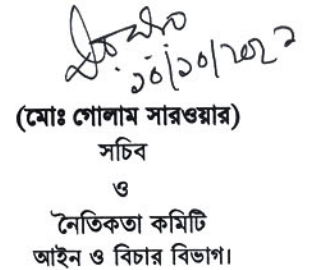 ১০/১০/২০২২
(মোঃ গোলাম সারওয়ার)
সচিব
ও
নৈতিকতা কমিটি
আইন ও বিচার বিভাগ।